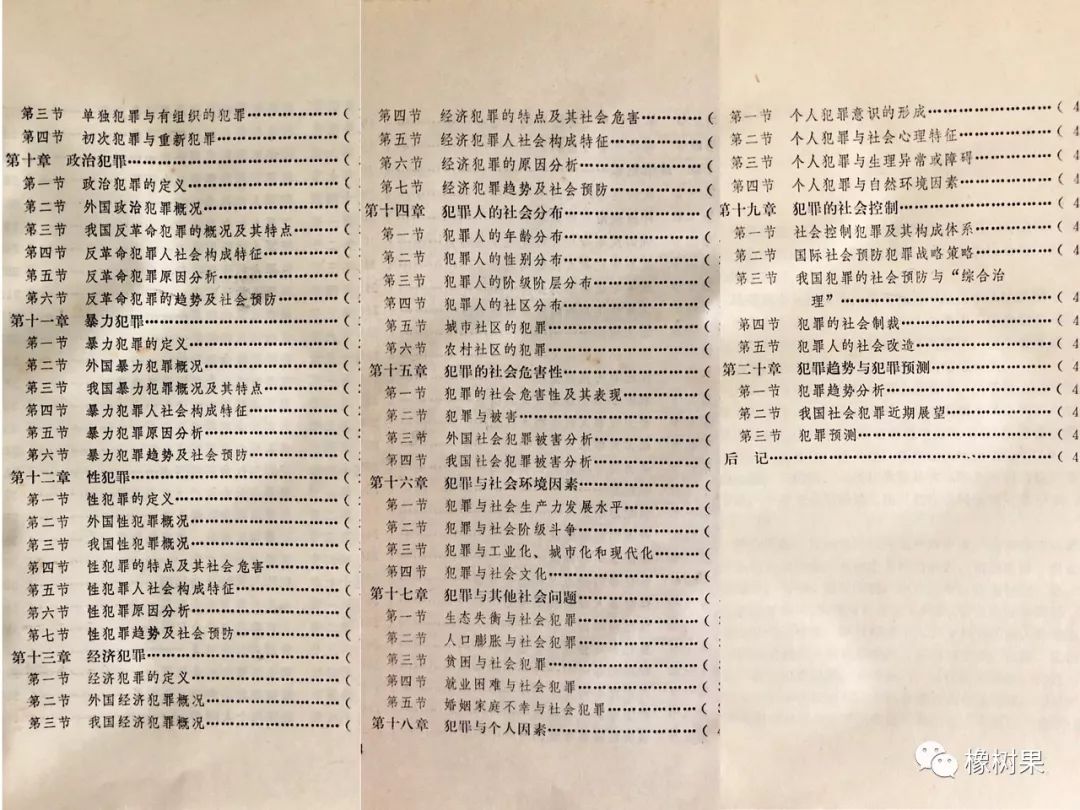 第三节 单独犯罪与有组织的犯罪……………(
第四节 初次犯罪与重新犯罪………………(
第十章 政治犯罪……………………………(
第一节 政治犯罪的定义……………………(
第二节 外国政治犯罪概况…………………(
第三节 我国反革命犯罪的概况及其特点……(
第四节 反革命犯罪人社会构成特征…………(
第五节 反革命犯罪原因分析………………(
第六节 反革命犯罪的趋势及社会预防………(
第十一章 暴力犯罪…………………………(
第一节 暴力犯罪的定义……………………(
第二节 外国暴力犯罪概况…………………(
第三节 我国暴力犯罪概况及其特点…………(
第四节 暴力犯罪人社会构成特征……………(
第五节 暴力犯罪原因分析…………………(
第六节 暴力犯罪趋势及社会预防……………(
第十二章 性犯罪……………………………(
第一节 性犯罪的定义………………………(
第二节 外国性犯罪概况……………………(
第三节 我国性犯罪概况……………………(
第四节 性犯罪的特点及其社会危害…………(
第五节 性犯罪人社会构成特征………………(
第六节 性犯罪原因分析……………………(
第七节 性犯罪趋势及社会预防………………(
第十三章 经济犯罪…………………………(
第一节 经济犯罪的定义……………………(
第二节 外国经济犯罪概况…………………(
第三节 我国经济犯罪概况…………………(
第四节 经济犯罪的特点及其社会危害………(
第五节 经济犯罪人社会构成特征……………(
第六节 经济犯罪的原因分析………………(
第七节 经济犯罪趋势及社会预防……………(
第十四章 犯罪人的社会分布………………(
第一节 犯罪人的年龄分布…………………(
第二节 犯罪人的性别分布…………………(
第三节 犯罪人的阶级阶层分布………………(
第四节 犯罪人的社区分布…………………(
第五节 城市社区的犯罪……………………(
第六节 农村社区的犯罪……………………(
第十五章 犯罪的社会危害性………………(
第一节 犯罪的社会危害性及其表现…………(
第二节 犯罪与被害…………………………(
第三节 外国社会犯罪被害分析………………(
第四节 我国社会犯罪被害分析………………(
第十六章 犯罪与社会环境因素………………(
第一节 犯罪与社会生产力发展水平…………(
第二节 犯罪与社会阶级斗争………………(
第三节 犯罪与工业化、城市化和现代化………(
第四节 犯罪与社会文化……………………(
第十七章 犯罪与其他社会问题………………(
第一节 生态失衡与社会犯罪………………(
第二节 人口膨胀与社会犯罪………………(
第三节 贫困与社会犯罪……………………(
第四节 就业困难与社会犯罪………………(
第五节 婚姻家庭不幸与社会犯罪……………(
第十八章 犯罪与个人因素…………………( 4
第一节 个人犯罪意识的形成………………( 4
第二节 个人犯罪与社会心理特征……………( 4
第三节 个人犯罪与生理异常或障碍…………( 4
第四节 个人犯罪与自然环境因素……………( 4
第十九章 犯罪的社会控制…………………( 4
第一节 社会控制犯罪及其构成体系…………( 4
第二节 国际社会预防犯罪战略策略…………( 4
第三节 我国犯罪的社会预防与“综合治
理”……………………………( 4
第四节 犯罪的社会制裁……………………( 4
第五节 犯罪人的社会改造…………………( 4
第二十章 犯罪趋势与犯罪预测………………( 4
第一节 犯罪趋势分析………………………( 4
第二节 我国社会犯罪近期展望………………( 4
第三节 犯罪预测……………………………( 4
后 记…………………………………………( 4
橡树果